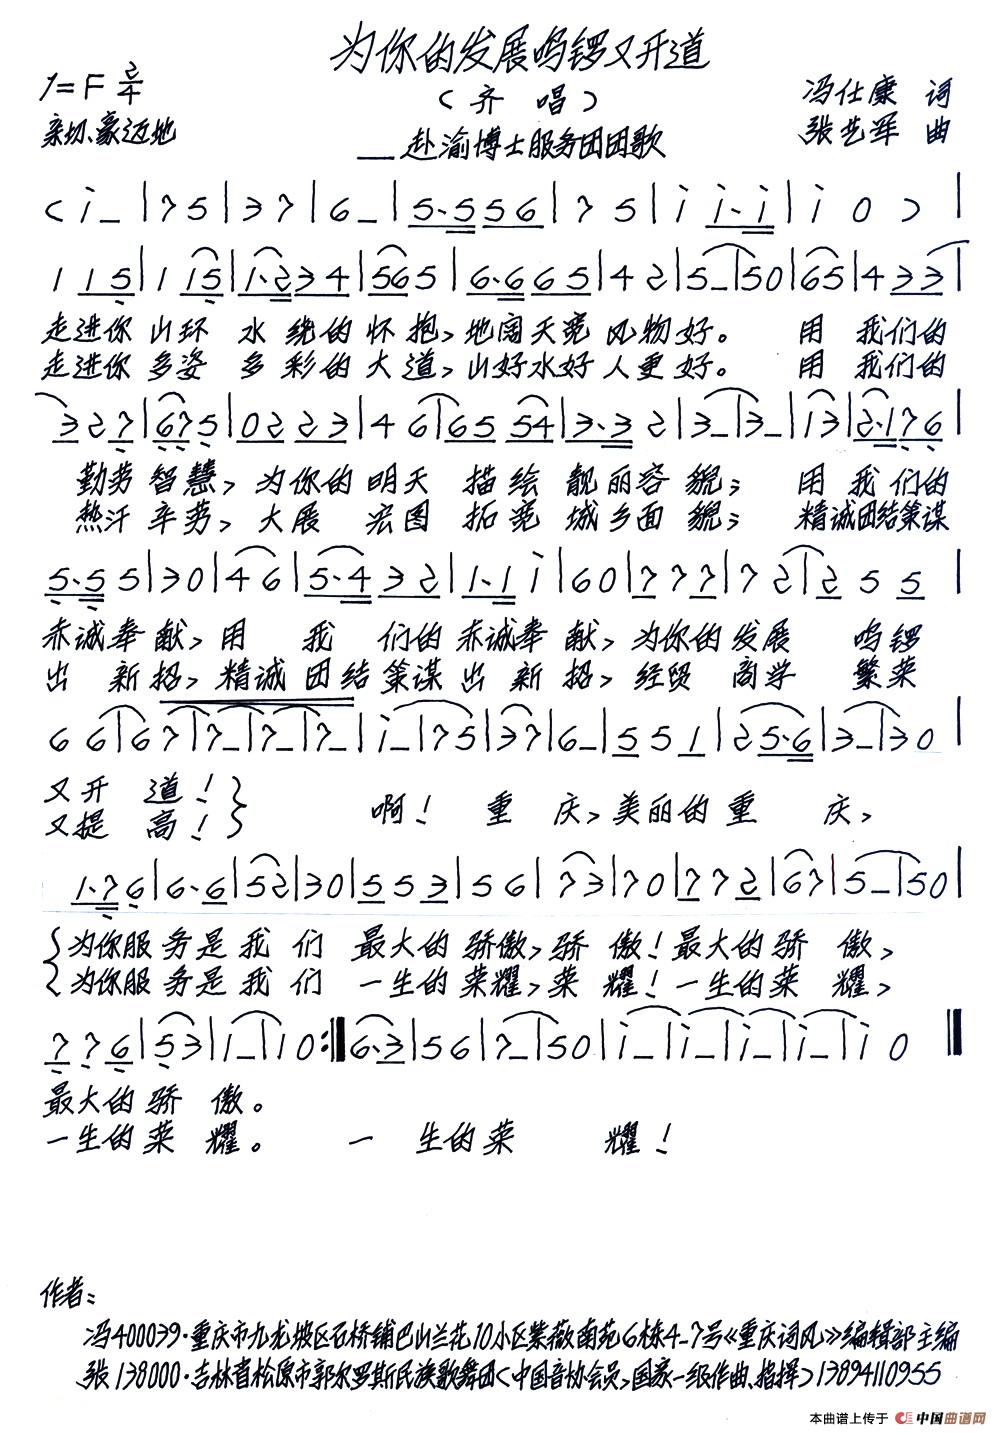 为你的发展鸣锣又开道
1=F 2/4
（齐唱）
冯仕康 词
亲切、豪迈地
张艺军 曲
——赴渝博士服务团团歌
走进你山环 水绕的怀抱，地阔天宽风物好。 用我们的
走进你多姿 多彩的大道，山好水好人更好。 用我们的
勤劳智慧，为你的明天 描绘靓丽容貌； 用我们的
热汗辛劳，大展宏图 拓宽城乡面貌； 精诚团结策谋
赤诚奉献，用 我 们的赤诚奉献，为你的发展 鸣锣
出新招，精诚团结策谋出新招，经贸商学 繁荣
又开道！
又提高！
啊！ 重庆，美丽的重庆，
为你服务是我们 最大的骄傲，骄傲！最大的骄傲，
为你服务是我们 一生的荣耀，荣耀！一生的荣耀，
最大的骄傲。
一生的荣耀。 一生的荣耀！
作者：
冯400039·重庆市九龙坡区石桥铺巴山兰花10小区紫薇南苑6栋4-7号《重庆词风》编辑部主编
张138000·吉林省松原市郭尔罗斯民族歌舞团（中国音协会员，国家一级作曲、指挥）13894110955
本曲谱上传于 中国曲谱网